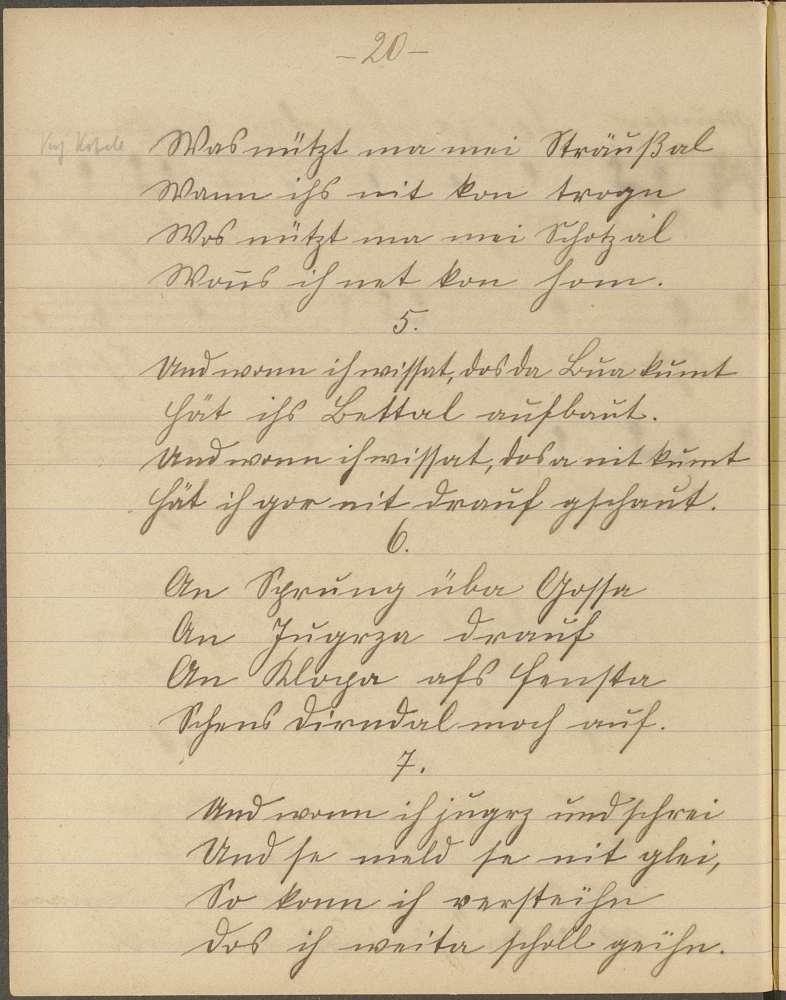 – 20 –
Was nützt ma mei Sträußal
Wann ihs nit kon trogn
Wos nützt ma mei Schotzal
Wons ih net kon hom.
5.
Und wonn ih wissat, dos da Bua kumt
Hät ihs Bettal aufbaut.
Und wonn ih wissat, dos a nit kumt
Hät ih gor nit drauf gschaut.
6.
An Sprung üba Gossa
An Jugrza drauf
An Klopfa afs Fensta
Schens Dirndal moch auf.
7.
Und wonn ih jugrz und schrei
Und se meld se nit glei,
So konn ih versteihn
Dos ih weita scholl geihn.